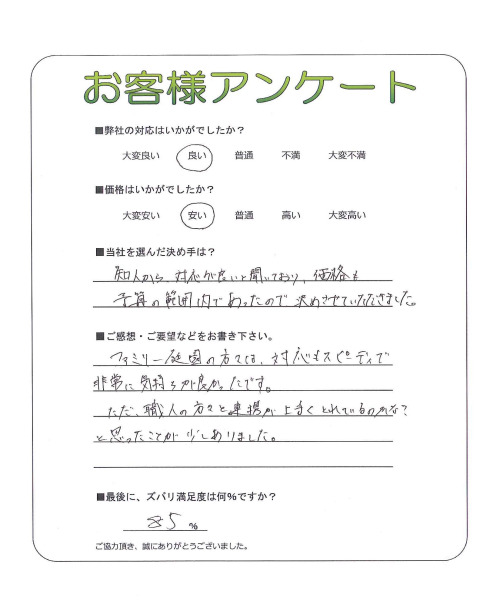 お客様アンケート
■弊社の対応はいかがでしたか？
大変良い 良い 普通 不満 大変不満
■価格はいかがでしたか？
大変安い 安い 普通 高い 大変高い
■当社を選んだ決め手は？
知人から、対応が良いと聞いており、価格も
予算の範囲内であったので決めさせていただきました。
■ご感想・ご要望などをお書き下さい。
ファミリー庭園の方々は、対応もスピーディで
非常に気持ちが良かったです。
ただ、職人の方々と連携が上手くとれているのかな？
と思ったことが少しありました。
■最後に、ズバリ満足度は何％ですか？
85 %
ご協力頂き、誠にありがとうございました。